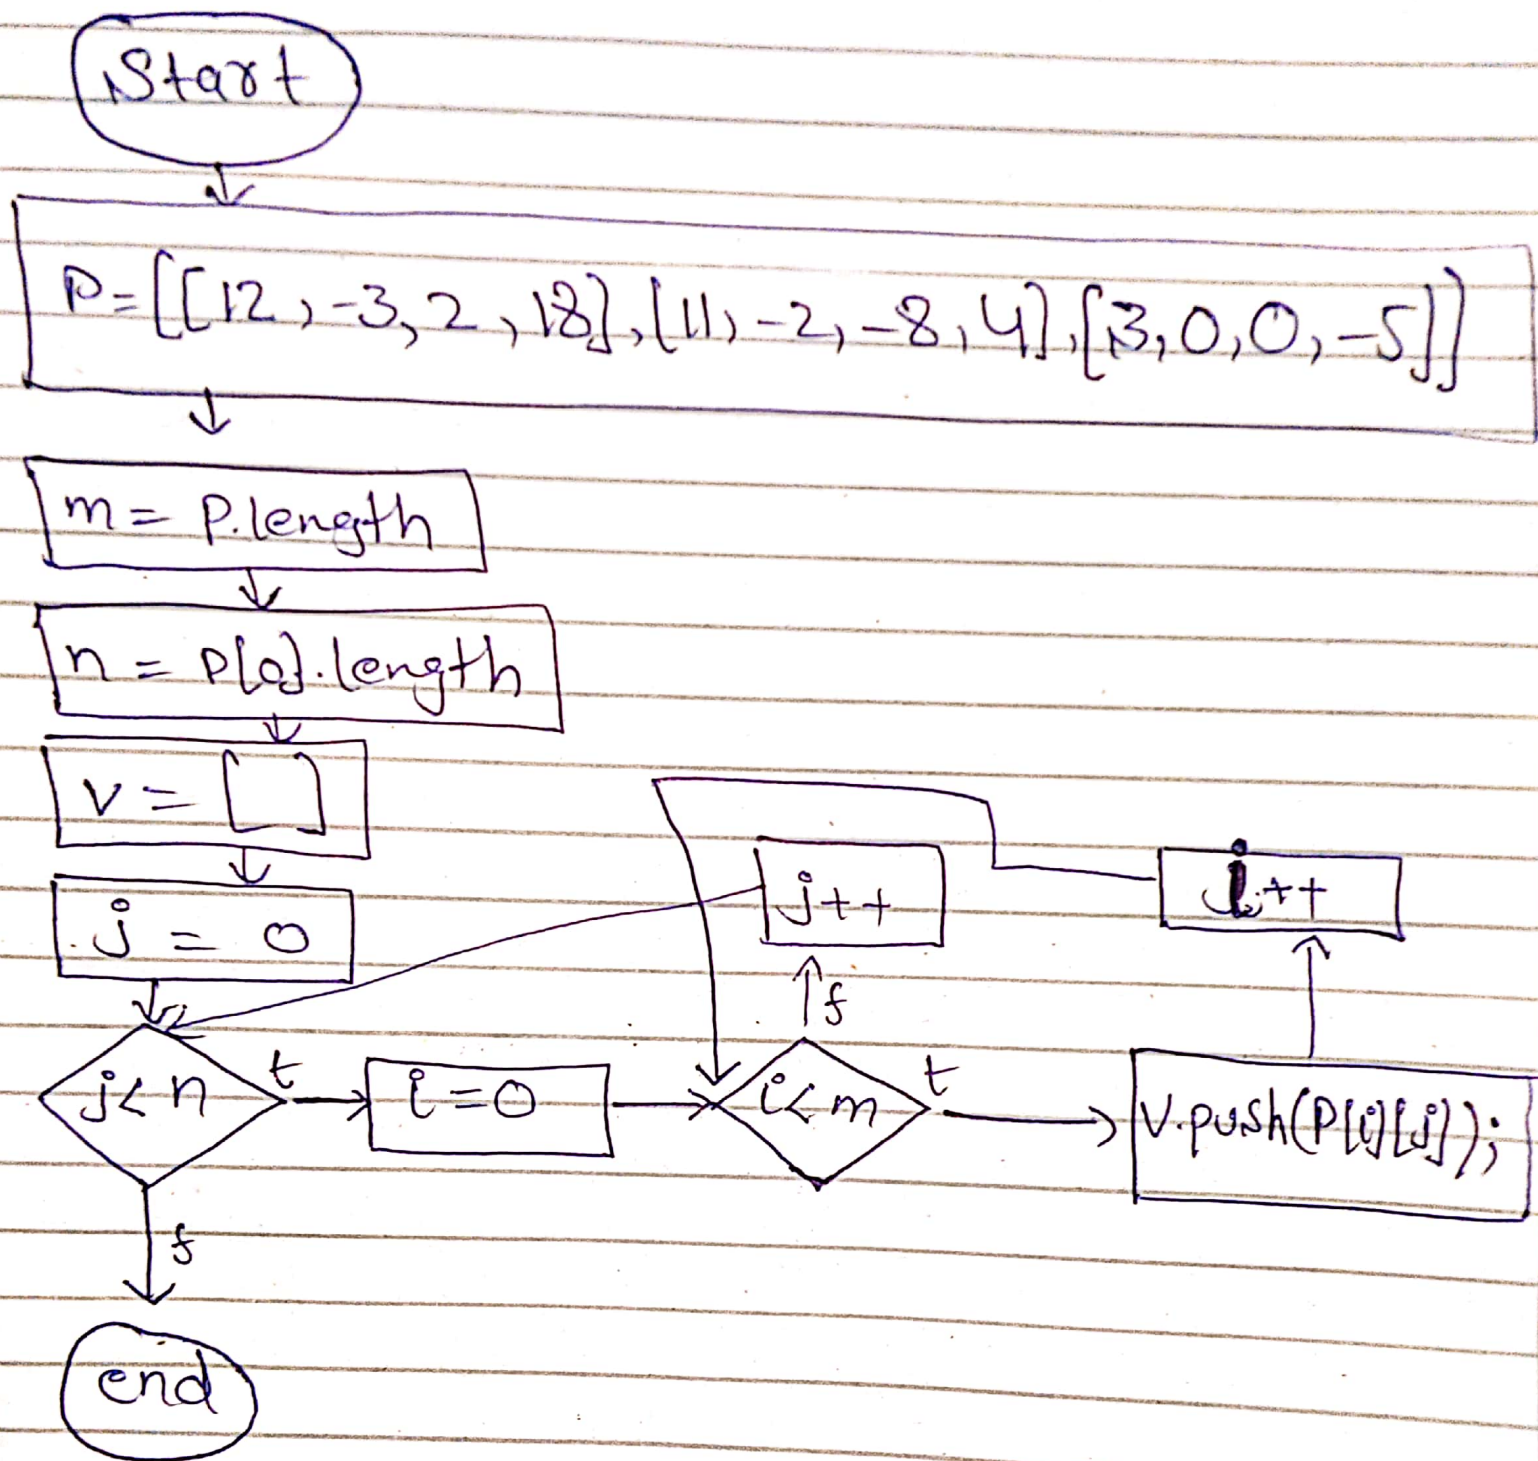 Start
P=[[12,-3,2,18],[11,-2,-8,4],[3,0,0,-5]]
m= P.length
n= P[0].length
v= []
j = 0
j++
i++
j<n
t
i=0
i<m
f
t
v.push(P[i][j]);
f
end